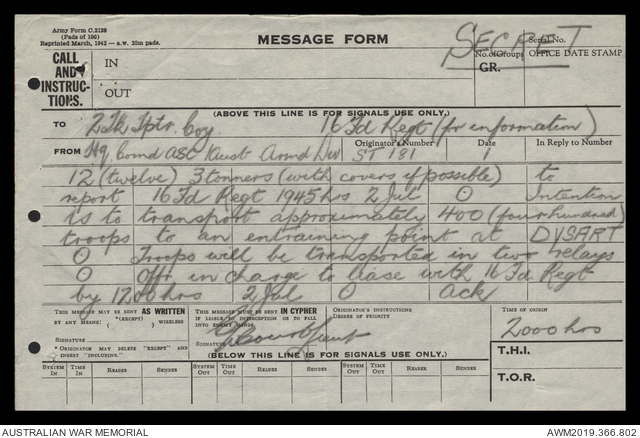 Army Form C.2128
(Pads of 100)
Reprinted March, 1942
MESSAGE FORM
SECRET
Serial No.
No. of Groups
OFFICE DATE STAMP
GR.
CALL
AND
INSTRUC-
TIONS.
IN
OUT
(ABOVE THIS LINE IS FOR SIGNALS USE ONLY.)
TO 2 Tk Tptr. Coy 16 Fd Regt (for information)
FROM Hq Comd ASC Aust Armd Div
Originator's Number
ST 181
Date
1
In Reply to Number
12 (twelve) 3 tonners (with covers if possible) to
report 16 Fd Regt 1945 hrs 2 Jul O Intention
is to transport approximately 400 (four hundred)
troops to an entraining point at DYSART
O Troops will be transported in two relays
O Offr in charge to liase with 16 Fd Regt
by 1200 hrs 2 Jul O Ack
THIS MESSAGE MAY BE SENT AS WRITTEN
BY ANY MEANS (EXCEPT) WIRELESS
SIGNATURE
* ORIGINATOR MAY DELETE "EXCEPT" AND
INSERT "INCLUDING."
THIS MESSAGE MUST BE SENT IN CYPHER
IF LIABLE TO INTERCEPTION OR TO FALL
INTO ENEMY HANDS.
SIGNATURE
ORIGINATOR'S INSTRUCTIONS
DEGREE OF PRIORITY
TIME OF ORIGIN
2000 hrs
T.H.I.
T.O.R.
(BELOW THIS LINE IS FOR SIGNALS USE ONLY.)
SYSTEM IN TIME IN READER SENDER SYSTEM OUT TIME OUT READER SENDER SYSTEM OUT TIME OUT READER SENDER
AUSTRALIAN WAR MEMORIAL
AWM2019.366.802